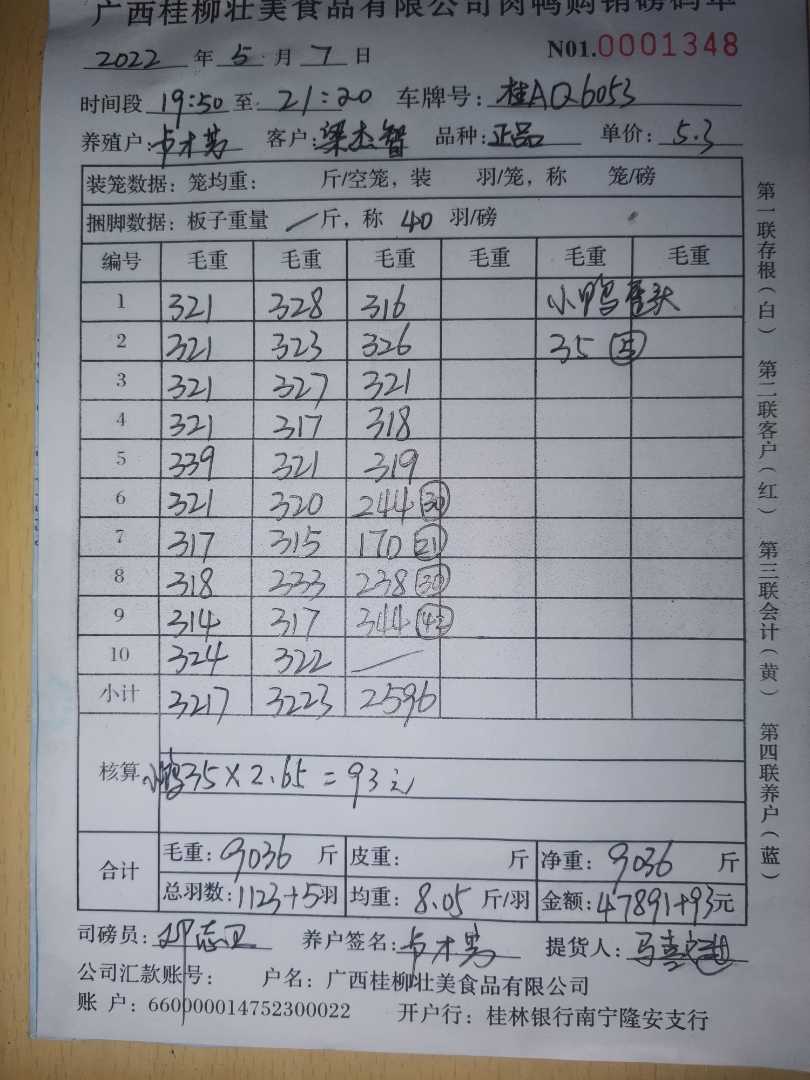 广西桂柳壮美食品有限公司肉鸭购销磅码单
2022 年 5 月 7 日 N01.0001348
时间段 19:50 至 21:20 车牌号: 桂AQ6053
养殖户: 卢才 客户: 梁杰智 品种: 正品 单价: 5.3
装笼数据: 笼均重: 斤/空笼, 装 羽/笼, 称 笼/磅
捆脚数据: 板子重量 / 斤, 称 40 羽/磅
编号 毛重 毛重 毛重 毛重 毛重 毛重
1 321 328 316 小鸭
2 321 323 326 35 5
3 321 327 321
4 321 317 318
5 339 321 319
6 321 320 244 30
7 317 315 170 21
8 318 333 238 30
9 314 317 344 42
10 324 322 —
小计 3217 3223 2596
核算 小鸭35×2.65=93元
合计 毛重: 9036 斤 皮重: 斤 净重: 9036 斤
总羽数: 1123+5羽 均重: 8.05 斤/羽 金额: 47891+93元
司磅员: 邓志卫 养户签名: 卢才 提货人: 马
公司汇款账号: 户名: 广西桂柳壮美食品有限公司
账 户: 660000014752300022 开户行: 桂林银行南宁隆安支行
第一联存根(白) 第二联客户(红) 第三联会计(黄) 第四联养户(蓝)